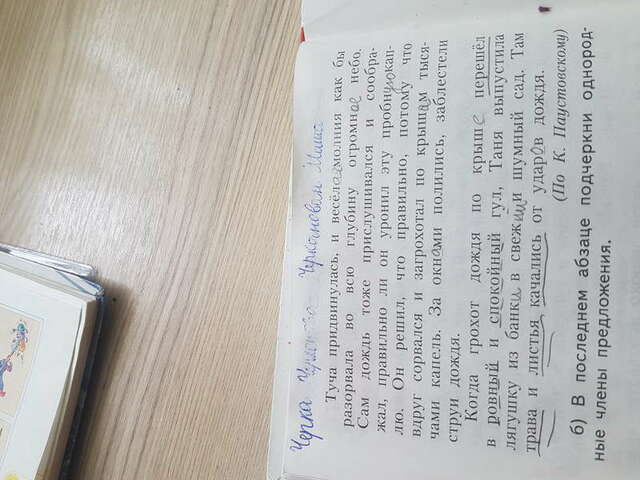 Черка
Туча придвинулась, и весёлая молния как бы
разорвала во всю глубину огромное небо.
Сам дождь тоже прислушивался и сообра-
жал, правильно ли он уронил эту пробную кап-
лю. Он решил, что правильно, потому что
вдруг сорвался и загрохотал по крышам тыся-
чами капель. За окнами полились, заблестели
струи дождя.
Когда грохот дождя по крыше перешёл
в ровный и спокойный гул, Таня выпустила
лягушку из банки в свежий шумный сад. Там
трава и листья качались от ударов дождя.
(По К. Паустовскому)
б) В последнем абзаце подчеркни однород-
ные члены предложения.